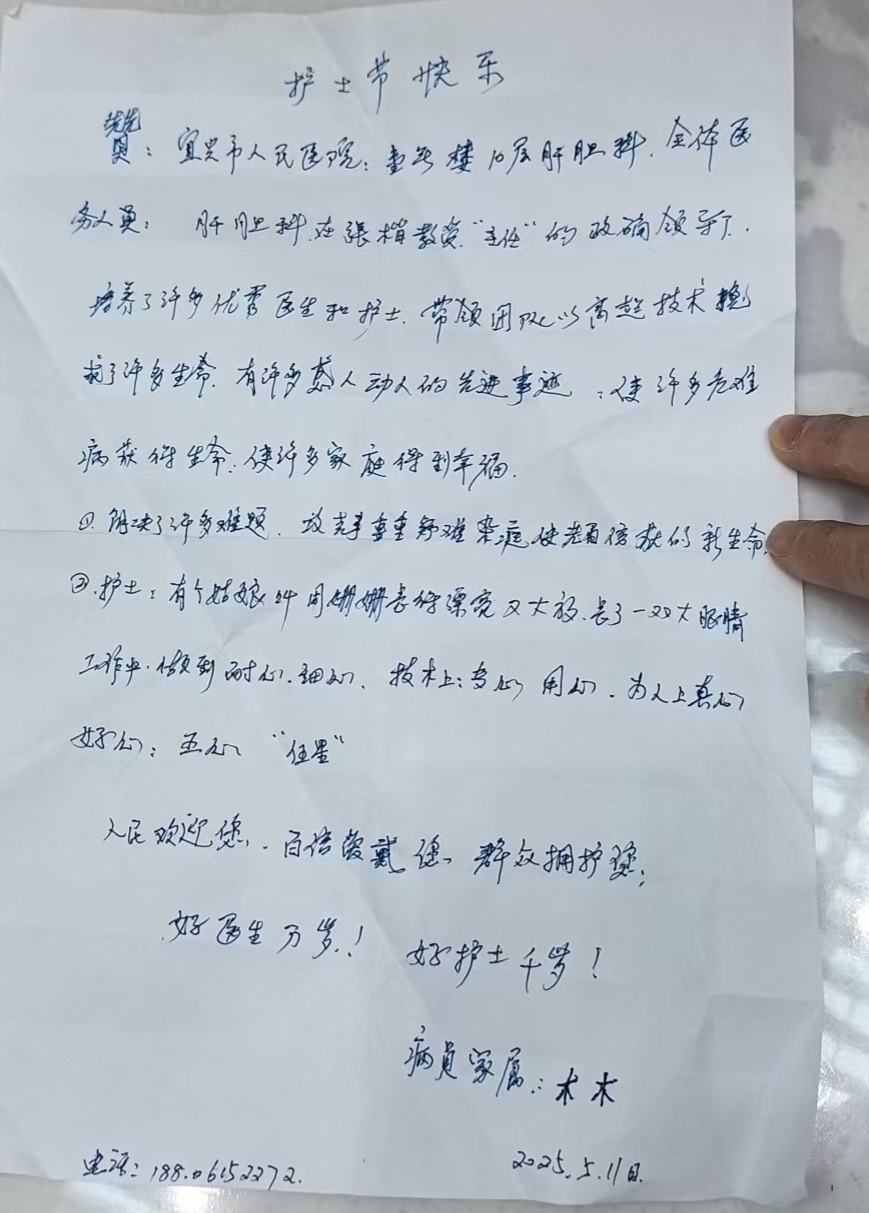 护士节快乐
赞：宜兴市人民医院：楼10层肝胆科．全体医
务人员：肝胆科．在張教授“主任”的政确领导下．
培养了许多优秀医生和护士．带领团队以高超技术挽
救了许多生命．有许多感人动人的先进事迹：使许多危难
病获得生命．使许多家庭得到幸福．
①．解决了许多难题．攻克重重疑难使信获的新生命．
②．护士：有个姑娘叫周姗姗长得漂亮又大放．长了一双大眼睛
工作中．做到耐心．细心．技术上：专心用心．为人上真心
好心：五心“伍星”
人民欢迎您．百倍爱戴您群众拥护您；
好医生万岁！好护士千岁！
病員家属：木木
电话：188.06152272.
2025.5.11日.